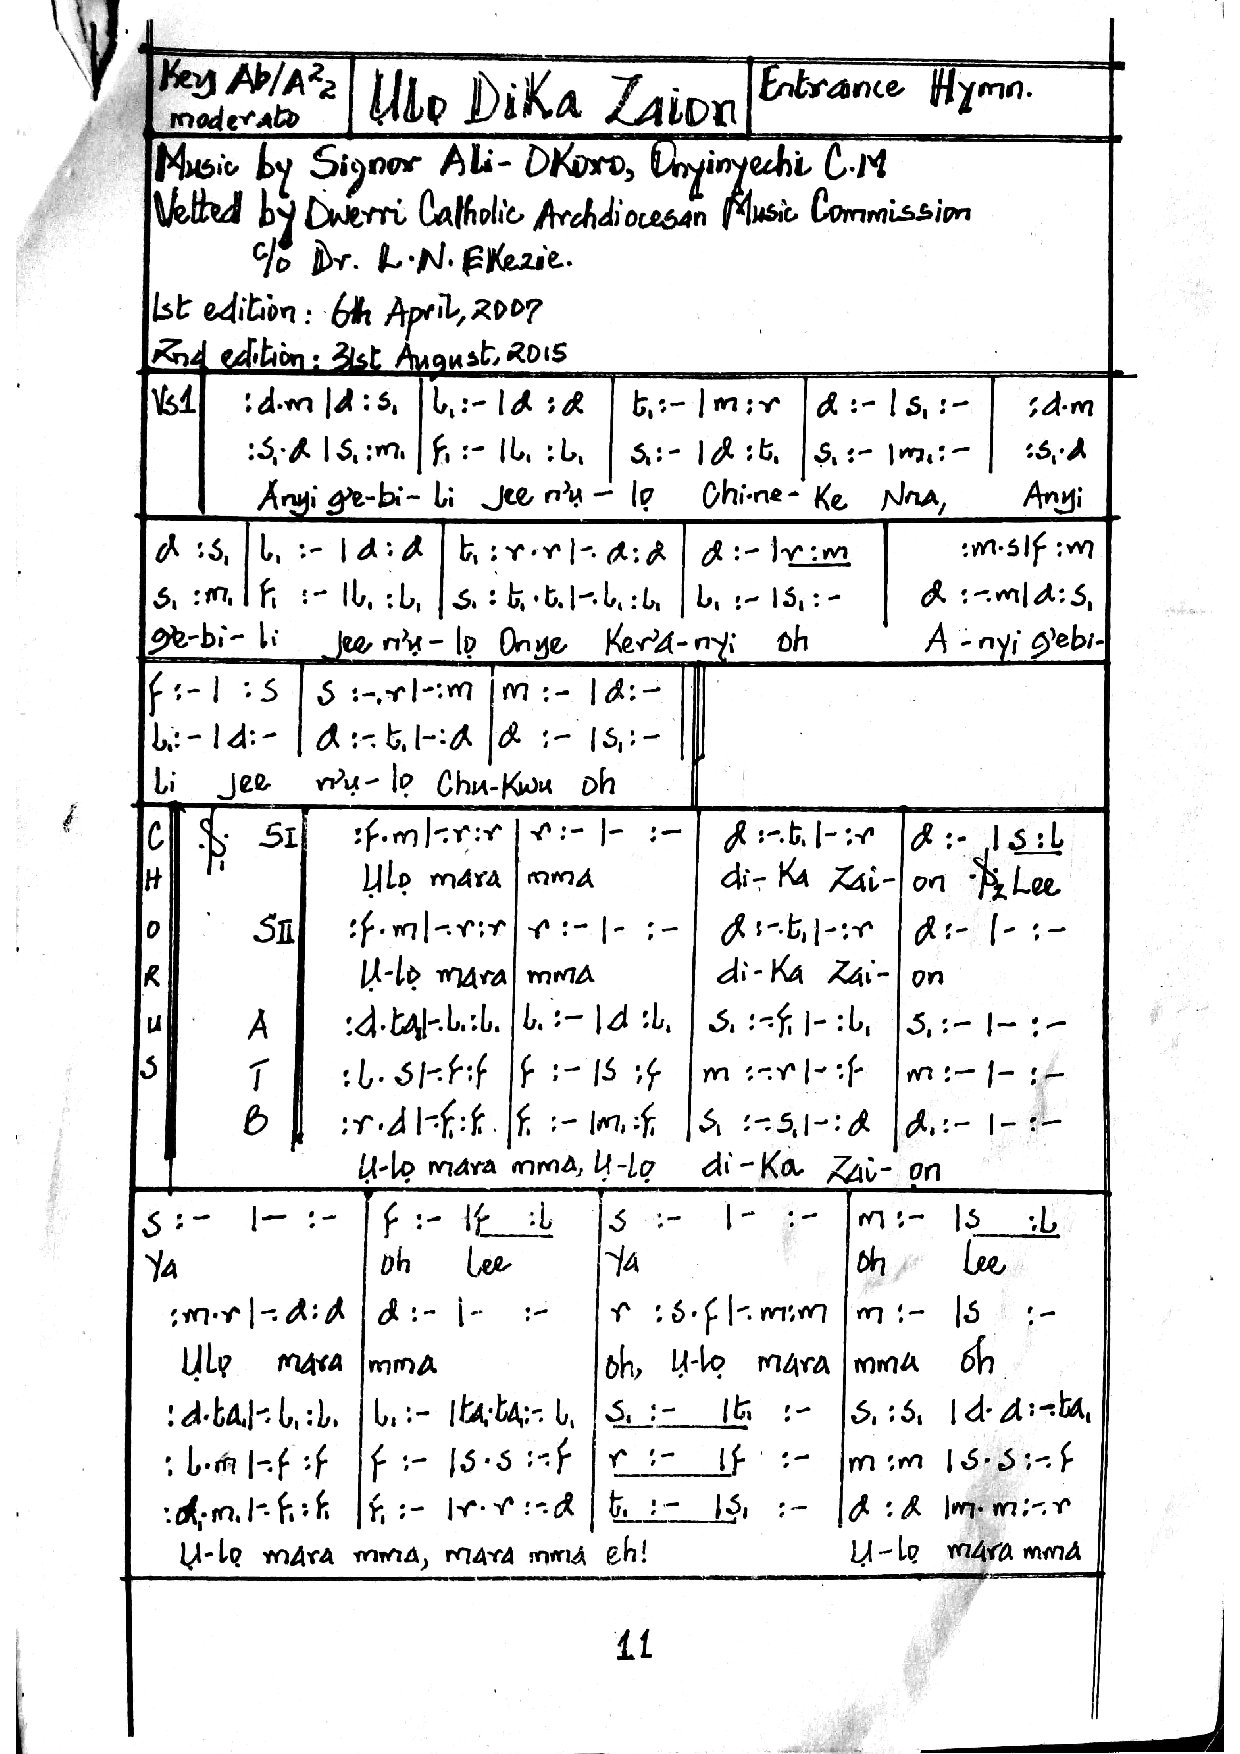 Key Ab/A²₂
moderato
Ụlọ Dika Zaion
Entrance Hymn.
Music by Signor Ali-Okoro, Onyinyechi C.M
Vetted by Owerri Catholic Archdiocesan Music Commission
c/o Dr. L.N. Ekezie.
1st edition: 6th April, 2007
2nd edition: 31st August, 2015
Vs1 :d.m |d :s₁ | l₁ :- |d :d | t₁ :- |m :r | d :- |s₁ :- | :d.m
:s₁.d |s₁ :m₁ | f₁ :- |l₁ :l₁ | s₁ :- |d :t₁ | s₁ :- |m₁ :- | :s₁.d
Anyi g'e-bi-li Jee n'ụ-lọ Chi-ne-Ke Nna, Anyi
d :s₁ | l₁ :- |d :d | t₁ :r.r |-.d :d | d :- |r :m | :m.s |f :m
s₁ :m₁ | f₁ :- |l₁ :l₁ | s₁ :t₁.t₁ |-.l₁ :l₁ | l₁ :- |s₁ :- | d :-.m |d :s₁
g'e-bi-li Jee n'ụ-lọ Onye Ker'a-nyi oh A-nyi g'ebi-
f :- | :s | s :-.r |- :m | m :- |d :-
l₁ :- |d :- | d :-.t₁ |- :d | d :- |s₁ :-
li Jee n'ụ-lọ Chu-Kwu oh
CHORUS
SI :f.m |-.r :r | r :- |- :- | d :-.t₁ |- :r | d :- |s :l
Ụlọ mara mma di-Ka Zai-on Lee
SII :f.m |-.r :r | r :- |- :- | d :-.t₁ |- :r | d :- |- :-
Ụ-lọ mara mma di-Ka Zai-on
A :d.ta₁ |-.l₁ :l₁ | l₁ :- |d :l₁ | s₁ :-.f₁ |- :l₁ | s₁ :- |- :-
T :l.s |-.f :f | f :- |s :f | m :-.r |- :f | m :- |- :-
B :r.d |-.f₁ :f₁ | f₁ :- |m₁ :f₁ | s₁ :-.s₁ |- :d | d₁ :- |- :-
Ụ-lọ mara mma, Ụ-lọ di-Ka Zai-on
s :- |- :- | f :- |f :l | s :- |- :- | m :- |s :l
Ya oh Lee Ya oh Lee
:m.r |-.d :d | d :- |- :- | r :s.f |-.m :m | m :- |s :-
Ụlọ mara mma oh, Ụ-lọ mara mma oh
:d.ta₁ |-.l₁ :l₁ | l₁ :- |ta₁.ta₁ :-.l₁ | s₁ :- |t₁ :- | s₁ :s₁ |d.d :-.ta₁
:l.m |-.f :f | f :- |s.s :-.f | r :- |f :- | m :m |s.s :-.f
:d₁.m₁ |-.f₁ :f₁ | f₁ :- |r.r :-.d | t₁ :- |s₁ :- | d :d |m.m :-.r
Ụ-lọ mara mma, mara mma eh! Ụ-lọ mara mma
11